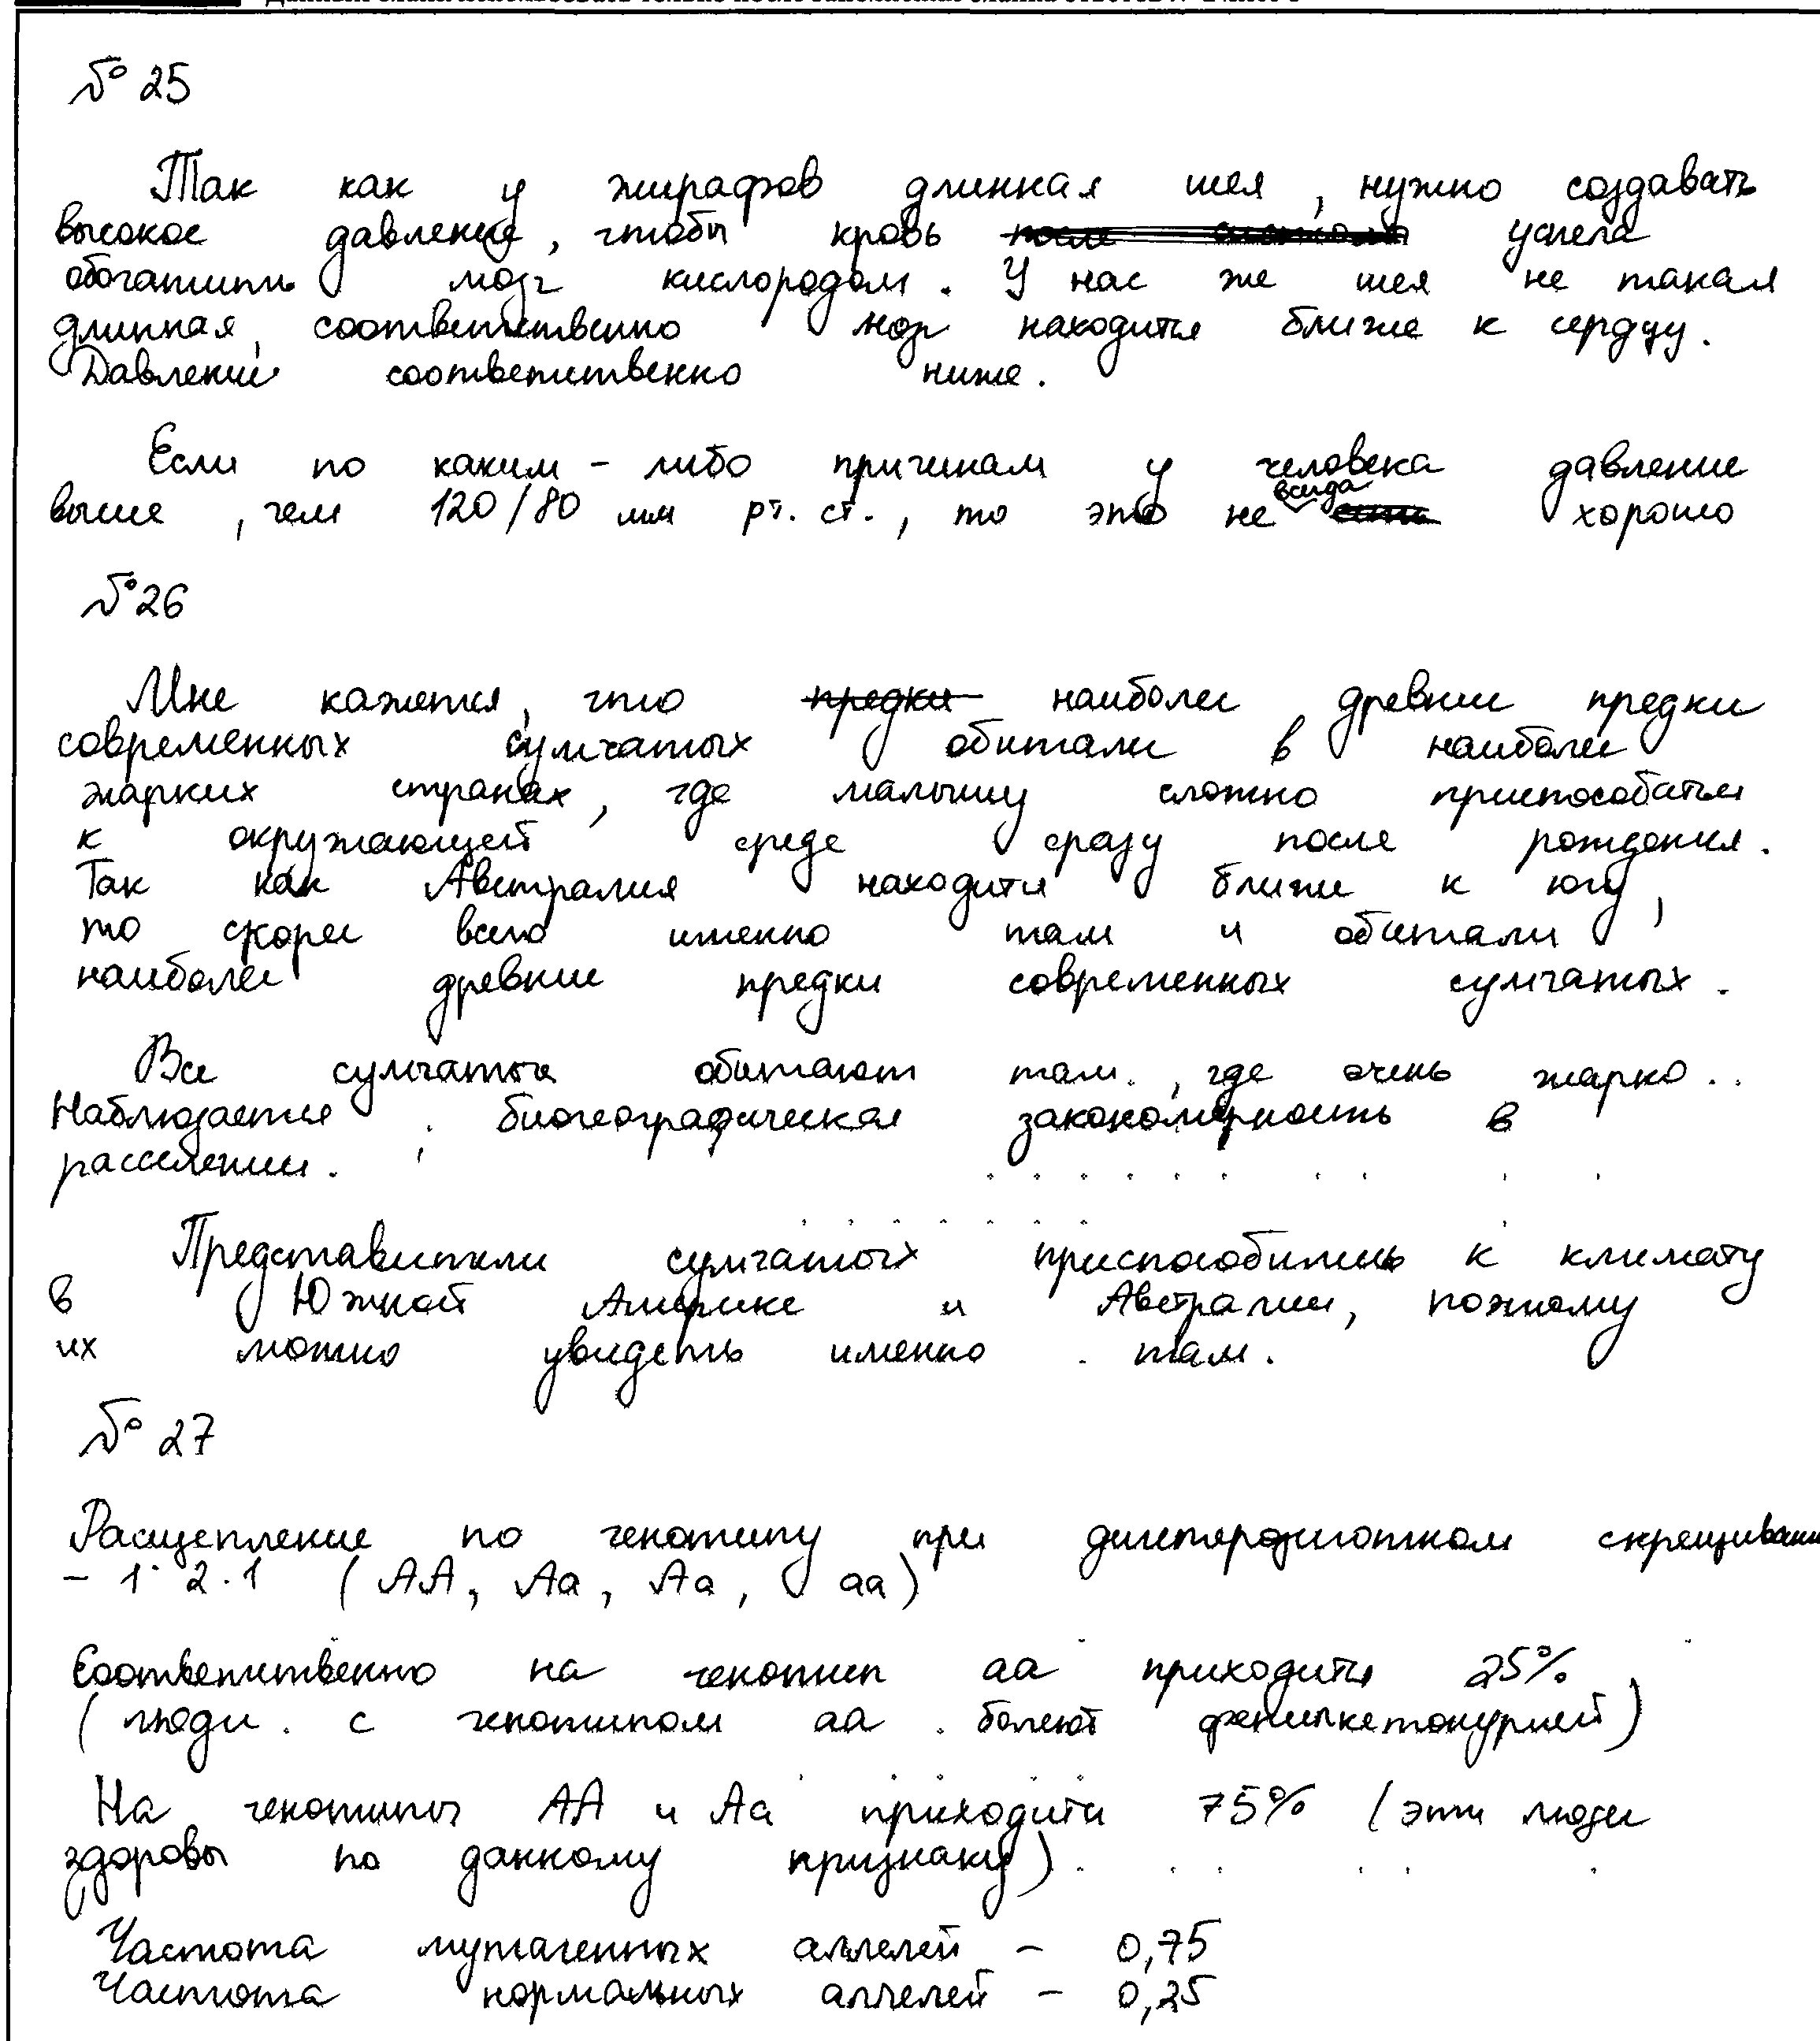 № 25
Так как у жирафов длинная шея, нужно создавать
высокое давление, чтобы кровь успела
обогатить мозг кислородом. У нас же шея не такая
длинная, соответственно мозг находится ближе к сердцу.
Давление соответственно ниже.
Если по каким-либо причинам у человека давление
выше, чем 120/80 мм рт. ст., то это не всегда хорошо
№ 26
Мне кажется, что предки наиболее древние предки
современных сумчатых обитали в наиболее
жарких странах, где малышу сложно приспосабаться
к окружающей среде сразу после рождения.
Так как Австралия находится ближе к югу,
то скорее всего именно там и обитали
наиболее древние предки современных сумчатых.
Все сумчатые обитают там, где очень жарко.
Наблюдается биогеографическая закономерность в
расселении.
Представители сумчатых приспособились к климату
в Южной Америке и Австралии, поэтому
их можно увидеть именно там.
№ 27
Расщепление по генотипу при дигетерозиготном скрещивании
- 1:2:1 (АА, Аа, Аа, аа)
Соответственно на генотип аа приходится 25%
(люди с генотипом аа болеют фенилкетонурией)
На генотипы АА и Аа приходится 75% (эти люди
здоровы по данному признаку).
Частота мутагенных аллелей - 0,75
Частота нормальных аллелей - 0,25